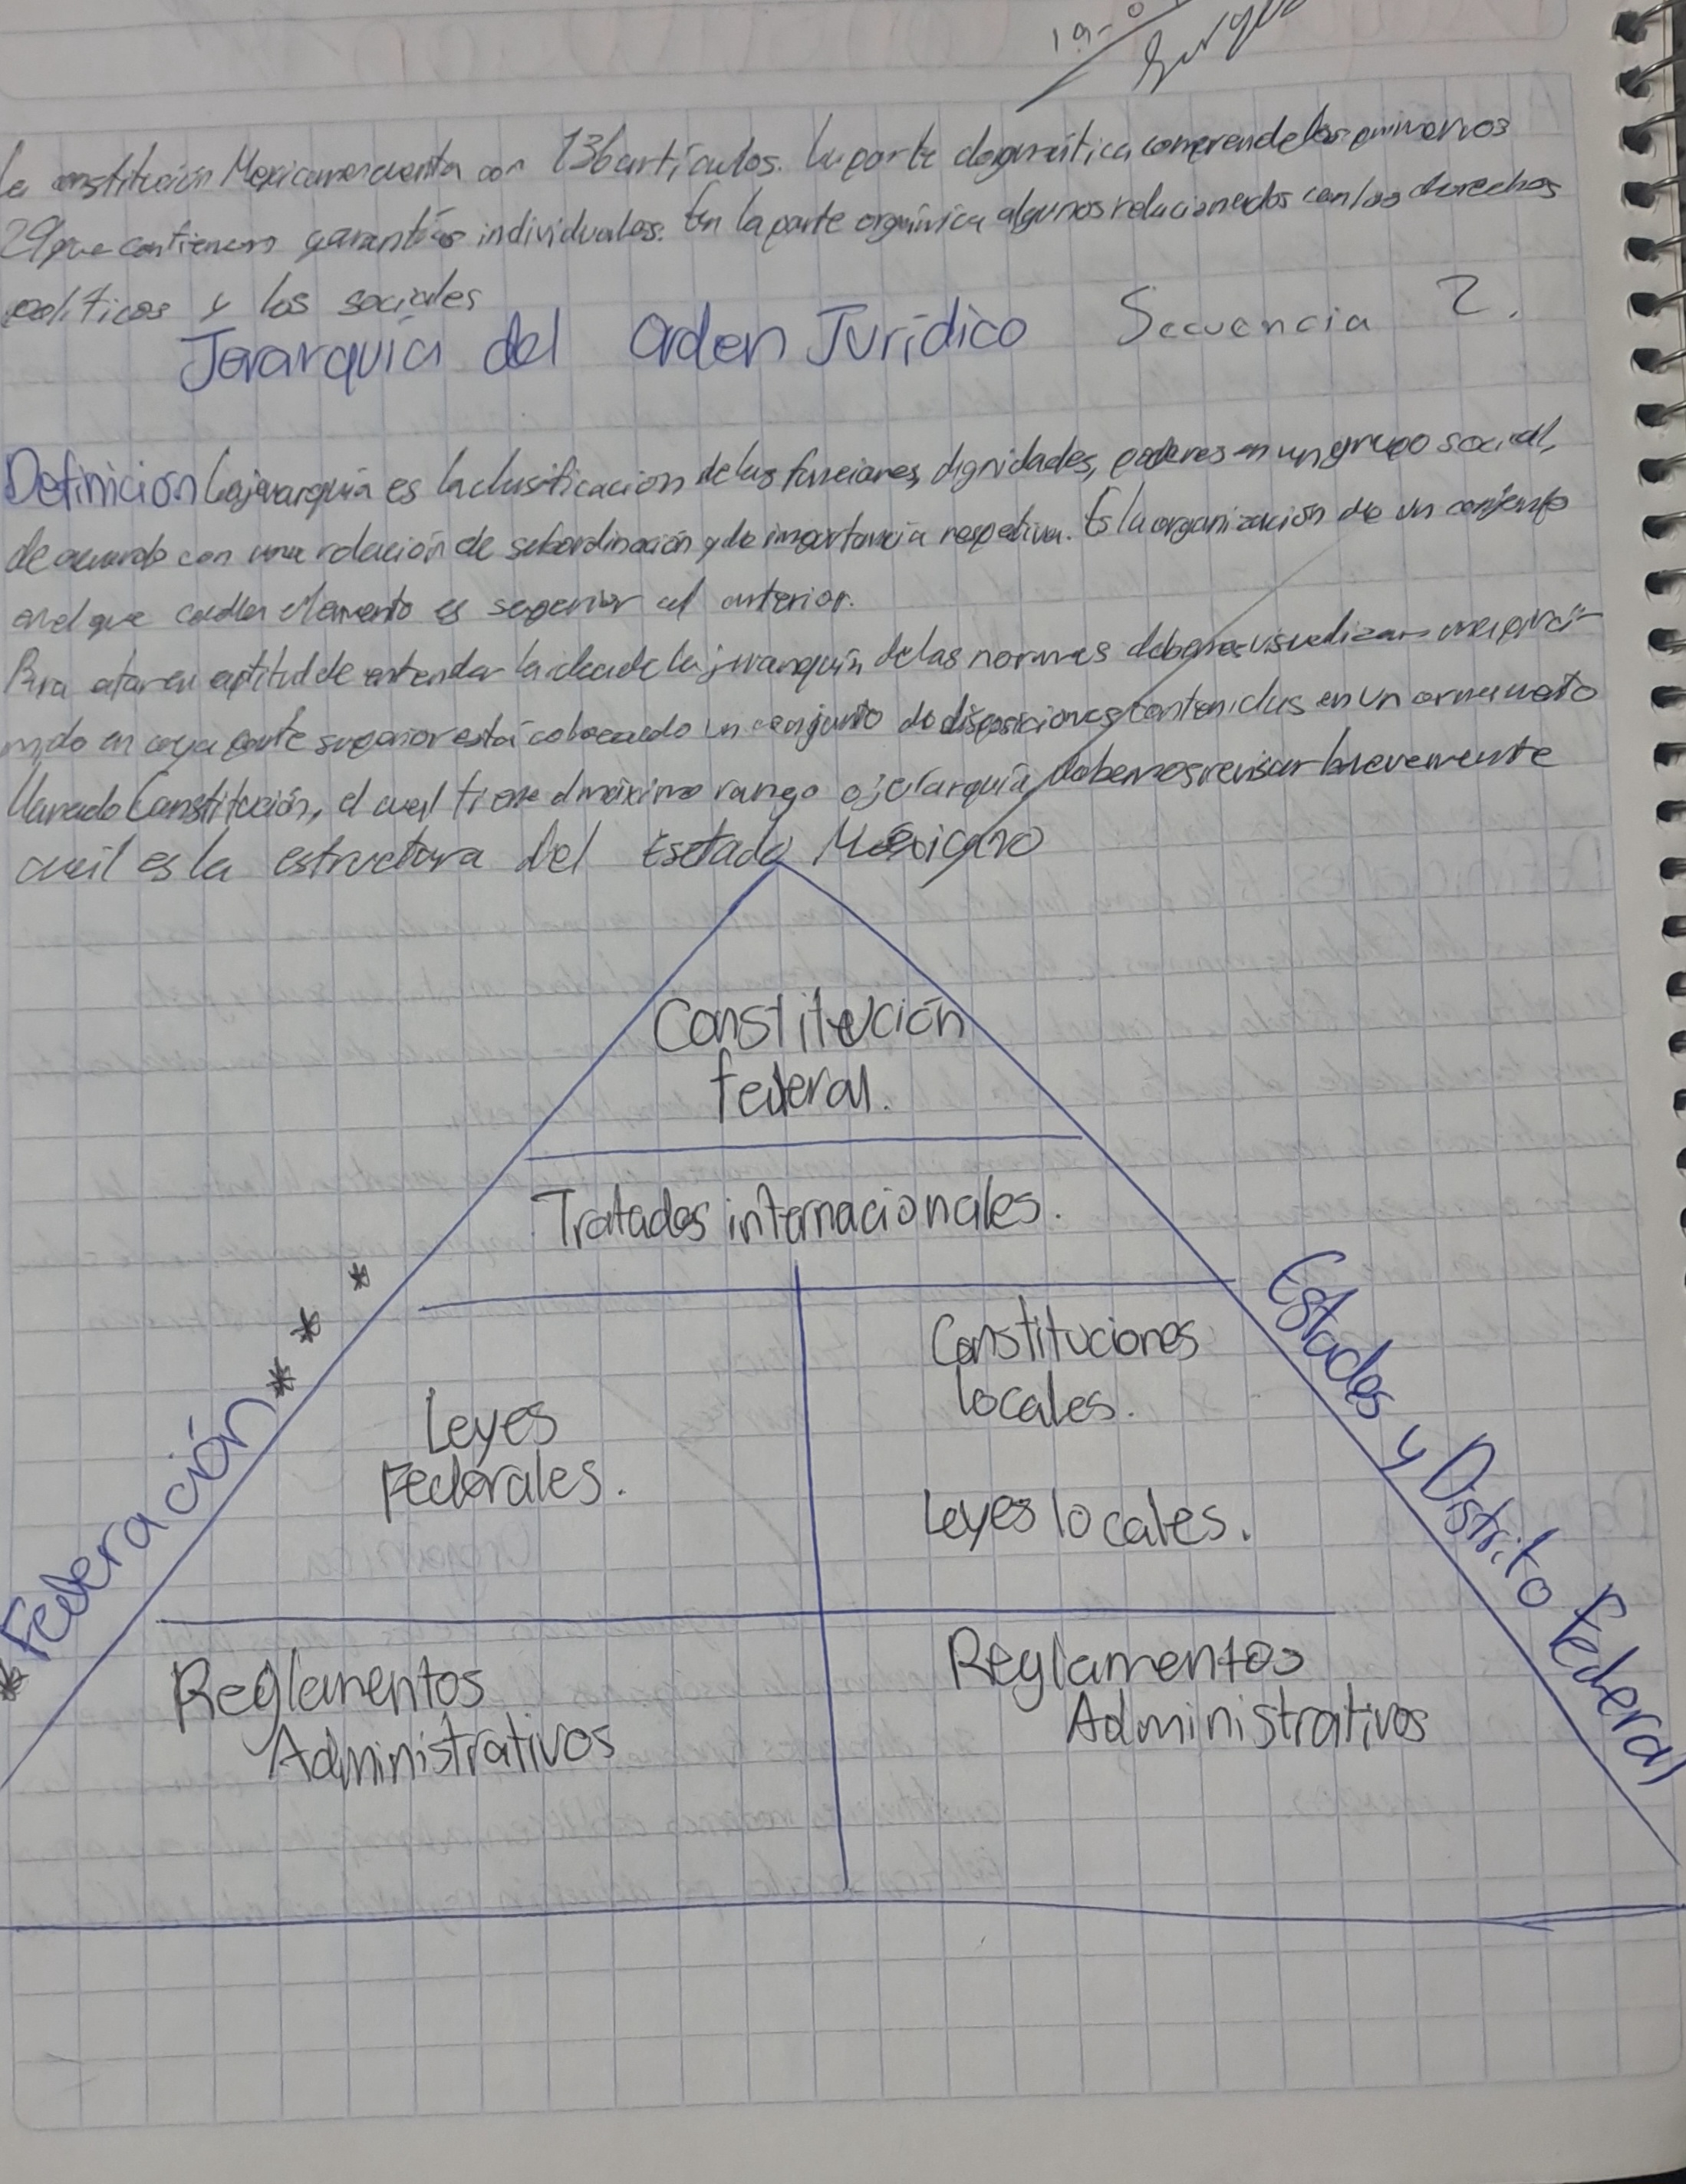 19-0
la constitución Mexicana cuenta con 136 artículos. La parte dogmática comprende los primeros
29 que contienen garantías individuales. En la parte orgánica algunos relacionados con los derechos
políticos y los sociales
Jerarquía del Orden Jurídico Secuencia 2.
Definición La jerarquía es la clasificación de las funciones, dignidades, poderes en un grupo social,
de acuerdo con una relación de subordinación y de importancia respetiva. Es la organización de un conjunto
en el que cada elemento es superior al anterior.
Para estar en aptitud de entender la idea de la jerarquía de las normas debemos visualizar una pirá-
mide en cuya parte superior está colocado un conjunto de disposiciones contenidas en un
llamado Constitución, el cual tiene el máximo rango o jerarquía, debemos revisar brevemente
cuál es la estructura del Esetado Mexicano
Constitución
federal.
Tratados internacionales.
Federación
Estados y Distrito Federal
Leyes
Federales.
Constituciones
locales.
Leyes locales.
Reglamentos
Administrativos
Reglamentos
Administrativos